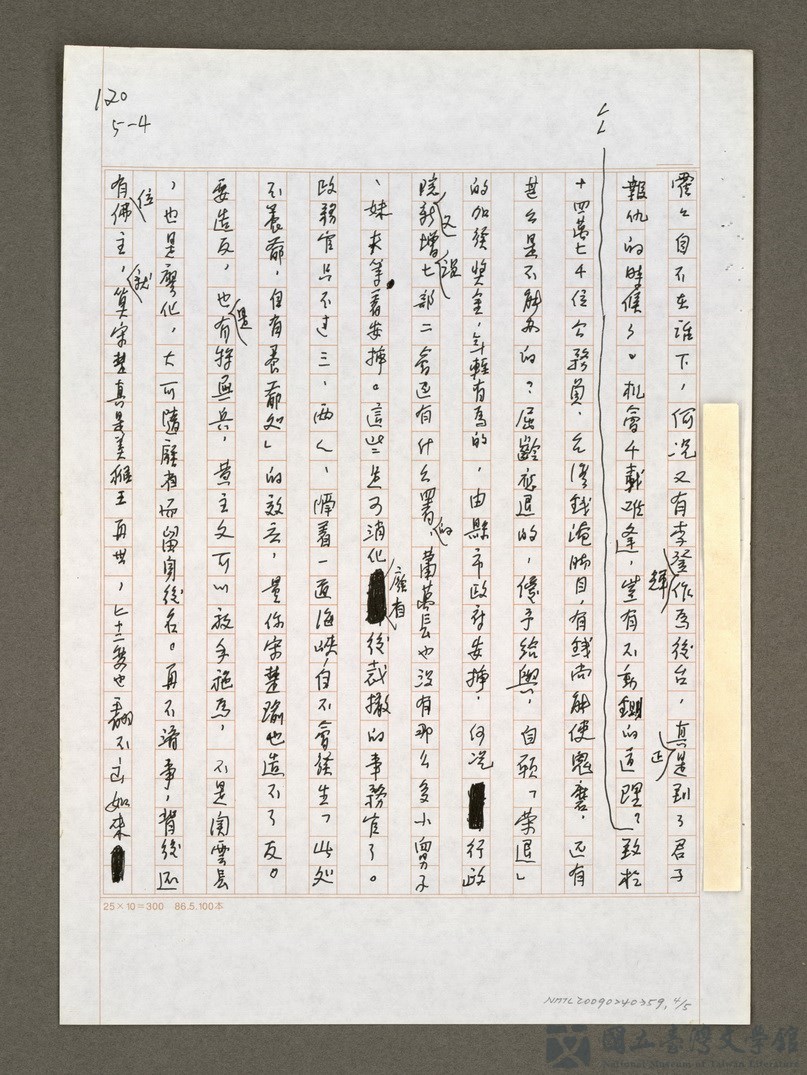 120
5-4
霍々自不在誰下，何況又有李登輝作為後台，真正是到了君子
報仇的時候了。机會千載难逢，豈有不動鍘的道理？致於
十四萬七千位公務員，台灣錢淹脚目，有錢尚能使鬼磨，还有
甚么是不能办的？屆齡應退的，優予給與，自願「荣退」
的加發獎金，年輕有為的，由縣市政府安揷，何況行政
院新增又設七部二會还有什么署的，蕭萬長也没有那么多小舅子
、妹夫等着安揷。這些是可消化，廢省後裁撤的事務官了。
政務官只不过三、兩人，隔着一道海峽，自不會發生「此処
不養爺，自有養爺処」的效应，量你宋楚瑜也造不了反。
要造反，也是有特無兵，黄主文可以放手施為，不是闻雲長
，也是廖化，大可隨廢省而留身後名。再不済事，背後还
有位佛主，就算宋楚真是美猴王再世，七十二変也翻不过如來
25×10=300 86.5.100本
NMTL20090240359, 4/5
國立臺灣文學館
National Museum of Taiwan Literature